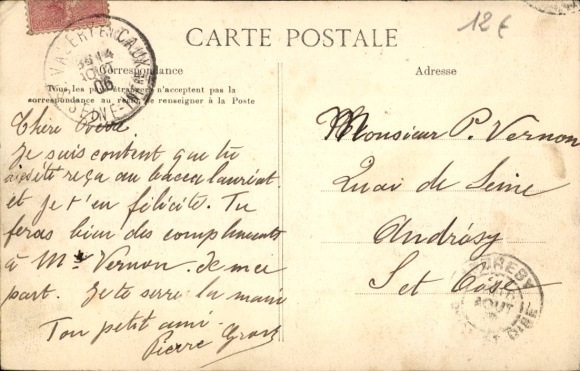 12€
CARTE POSTALE
Correspondance
Adresse
Tous les pays étrangers n'acceptent pas la
correspondance au recto, se renseigner à la Poste
VALERY EN CAUX
AOUT
06
Chère
Je suis content que tu
aies été reçu au baccalauréat
et je t'en félicite. Tu
feras bien des compliments
à Mr Vernon de ma
part. Je te serre la main
Ton petit ami.
Pierre
Monsieur P. Vernon
Quai de Seine
Andrésy
Set Oise
AOUT
OISE